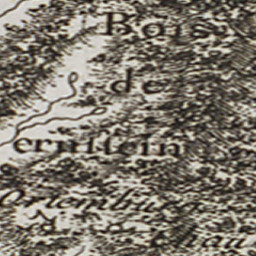 Bois
de
ernstein
Ortembourg